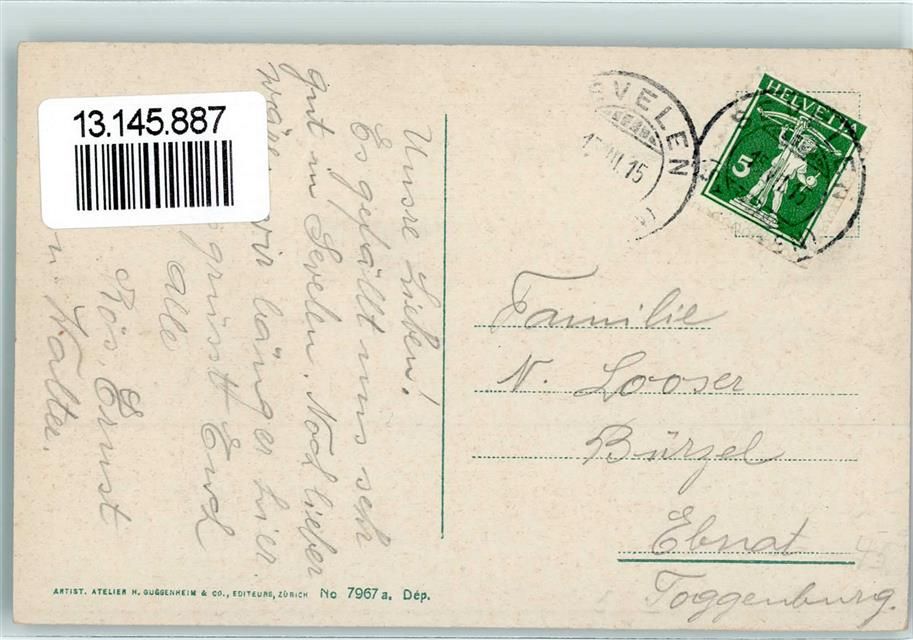 13.145.887
Unsre Lieben!
Es gefällt uns sehr
gut in Sevelen. Noch lieber
wäre wir länger hier.
grüsst Euch
alle
Rös, Ernst
n. Walter.
SEVELEN
VII.15
HELVETIA
5
Familie
N. Looser
Bürzel
Ebnat
Toggenburg.
45
ARTIST. ATELIER H. GUGGENHEIM & CO., EDITEURS, ZÜRICH No 7967a. Dép.